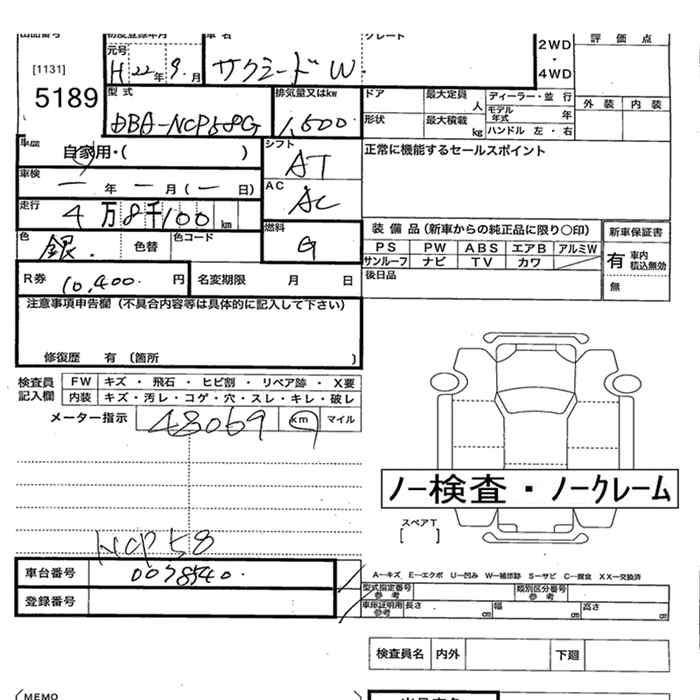 出品番号 初度登録年月 車名 グレード
[1131]
5189
元号 H 22年 9月
サクシードW.
2WD・4WD
評価点
外装 内装
型式 DBA-NCP58G
排気量又はkw 1,500
ドア 最大定員 人 ディーラー・並行
形状 最大積載 kg モデル年式 年
ハンドル 左・右
車歴 自家用・( )
シフト AT
正常に機能するセールスポイント
車検 ー年ー月(ー日)
AC AC
走行 4万8千100km
燃料 G
色 銀. 色替 色コード
装備品(新車からの純正品に限り○印)
PS PW ABS エアB アルミW
サンルーフ ナビ TV カワ
後日品
新車保証書
有 車内積込無効
無
R券 10,400円 名変期限 月 日
注意事項申告欄(不具合内容等は具体的に記入して下さい)
修復歴 有 〔箇所 〕
検査員記入欄
FW キズ・飛石・ヒビ割・リペア跡・X要
内装 キズ・汚レ・コゲ・穴・スレ・キレ・破レ
メーター指示 48069 km マイル
ノー検査・ノークレーム
スペアT
[ ]
NCP58
車台番号
登録番号
A―キズ E―エクボ U―凹み W―補修跡 S―サビ C―腐食 XX―交換済
型式指定番号 参考 類別区分番号 参考
車庫証明用 参考 長さ cm 幅 cm 高さ cm
検査員名 内外 下廻
(MEMO